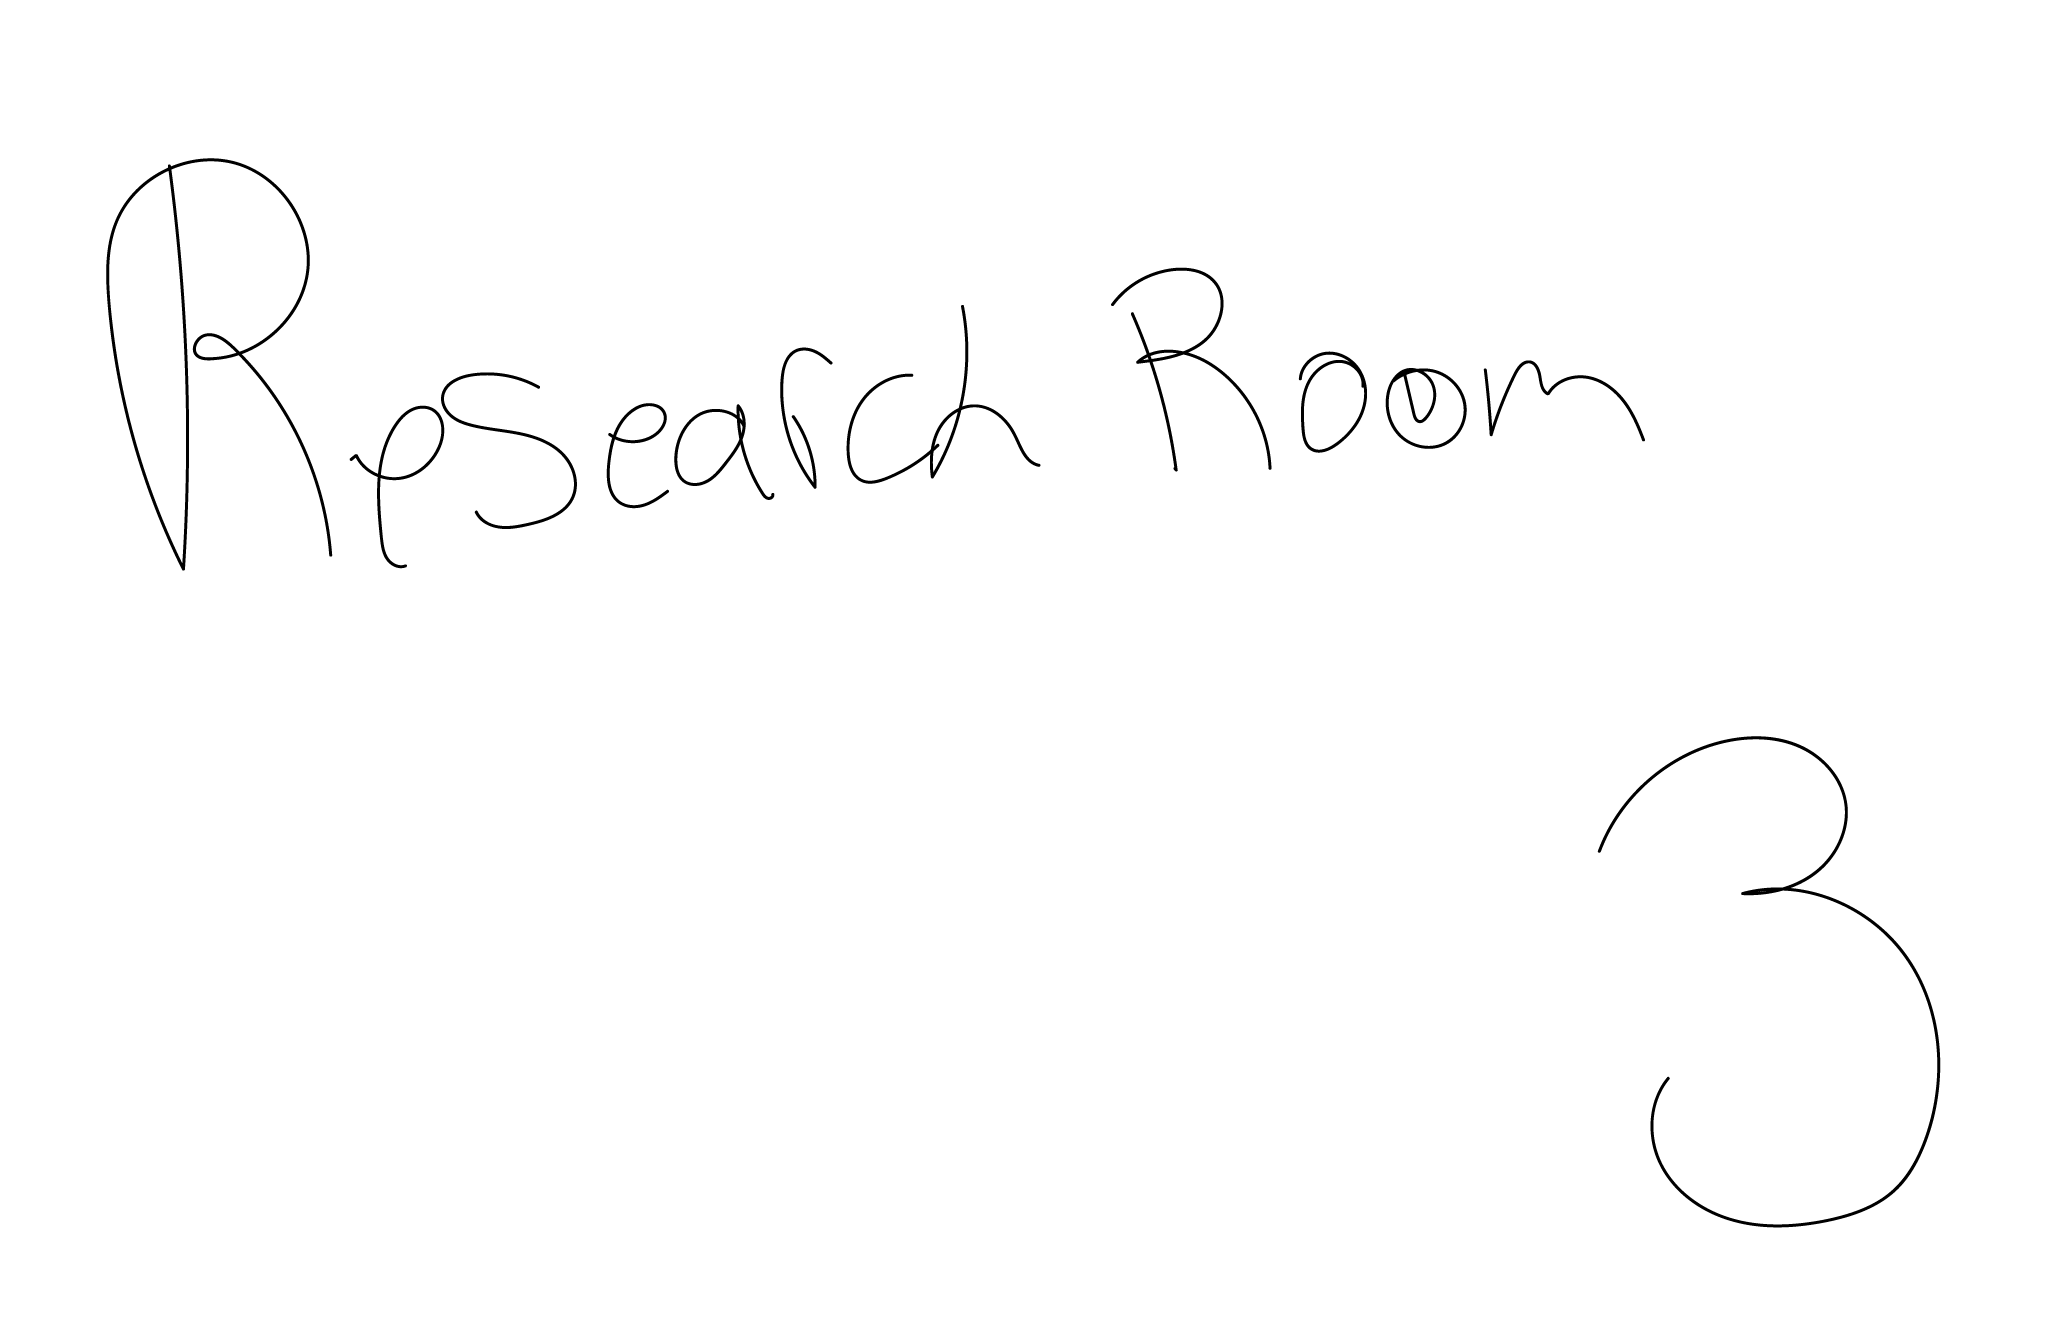 Research Room
3